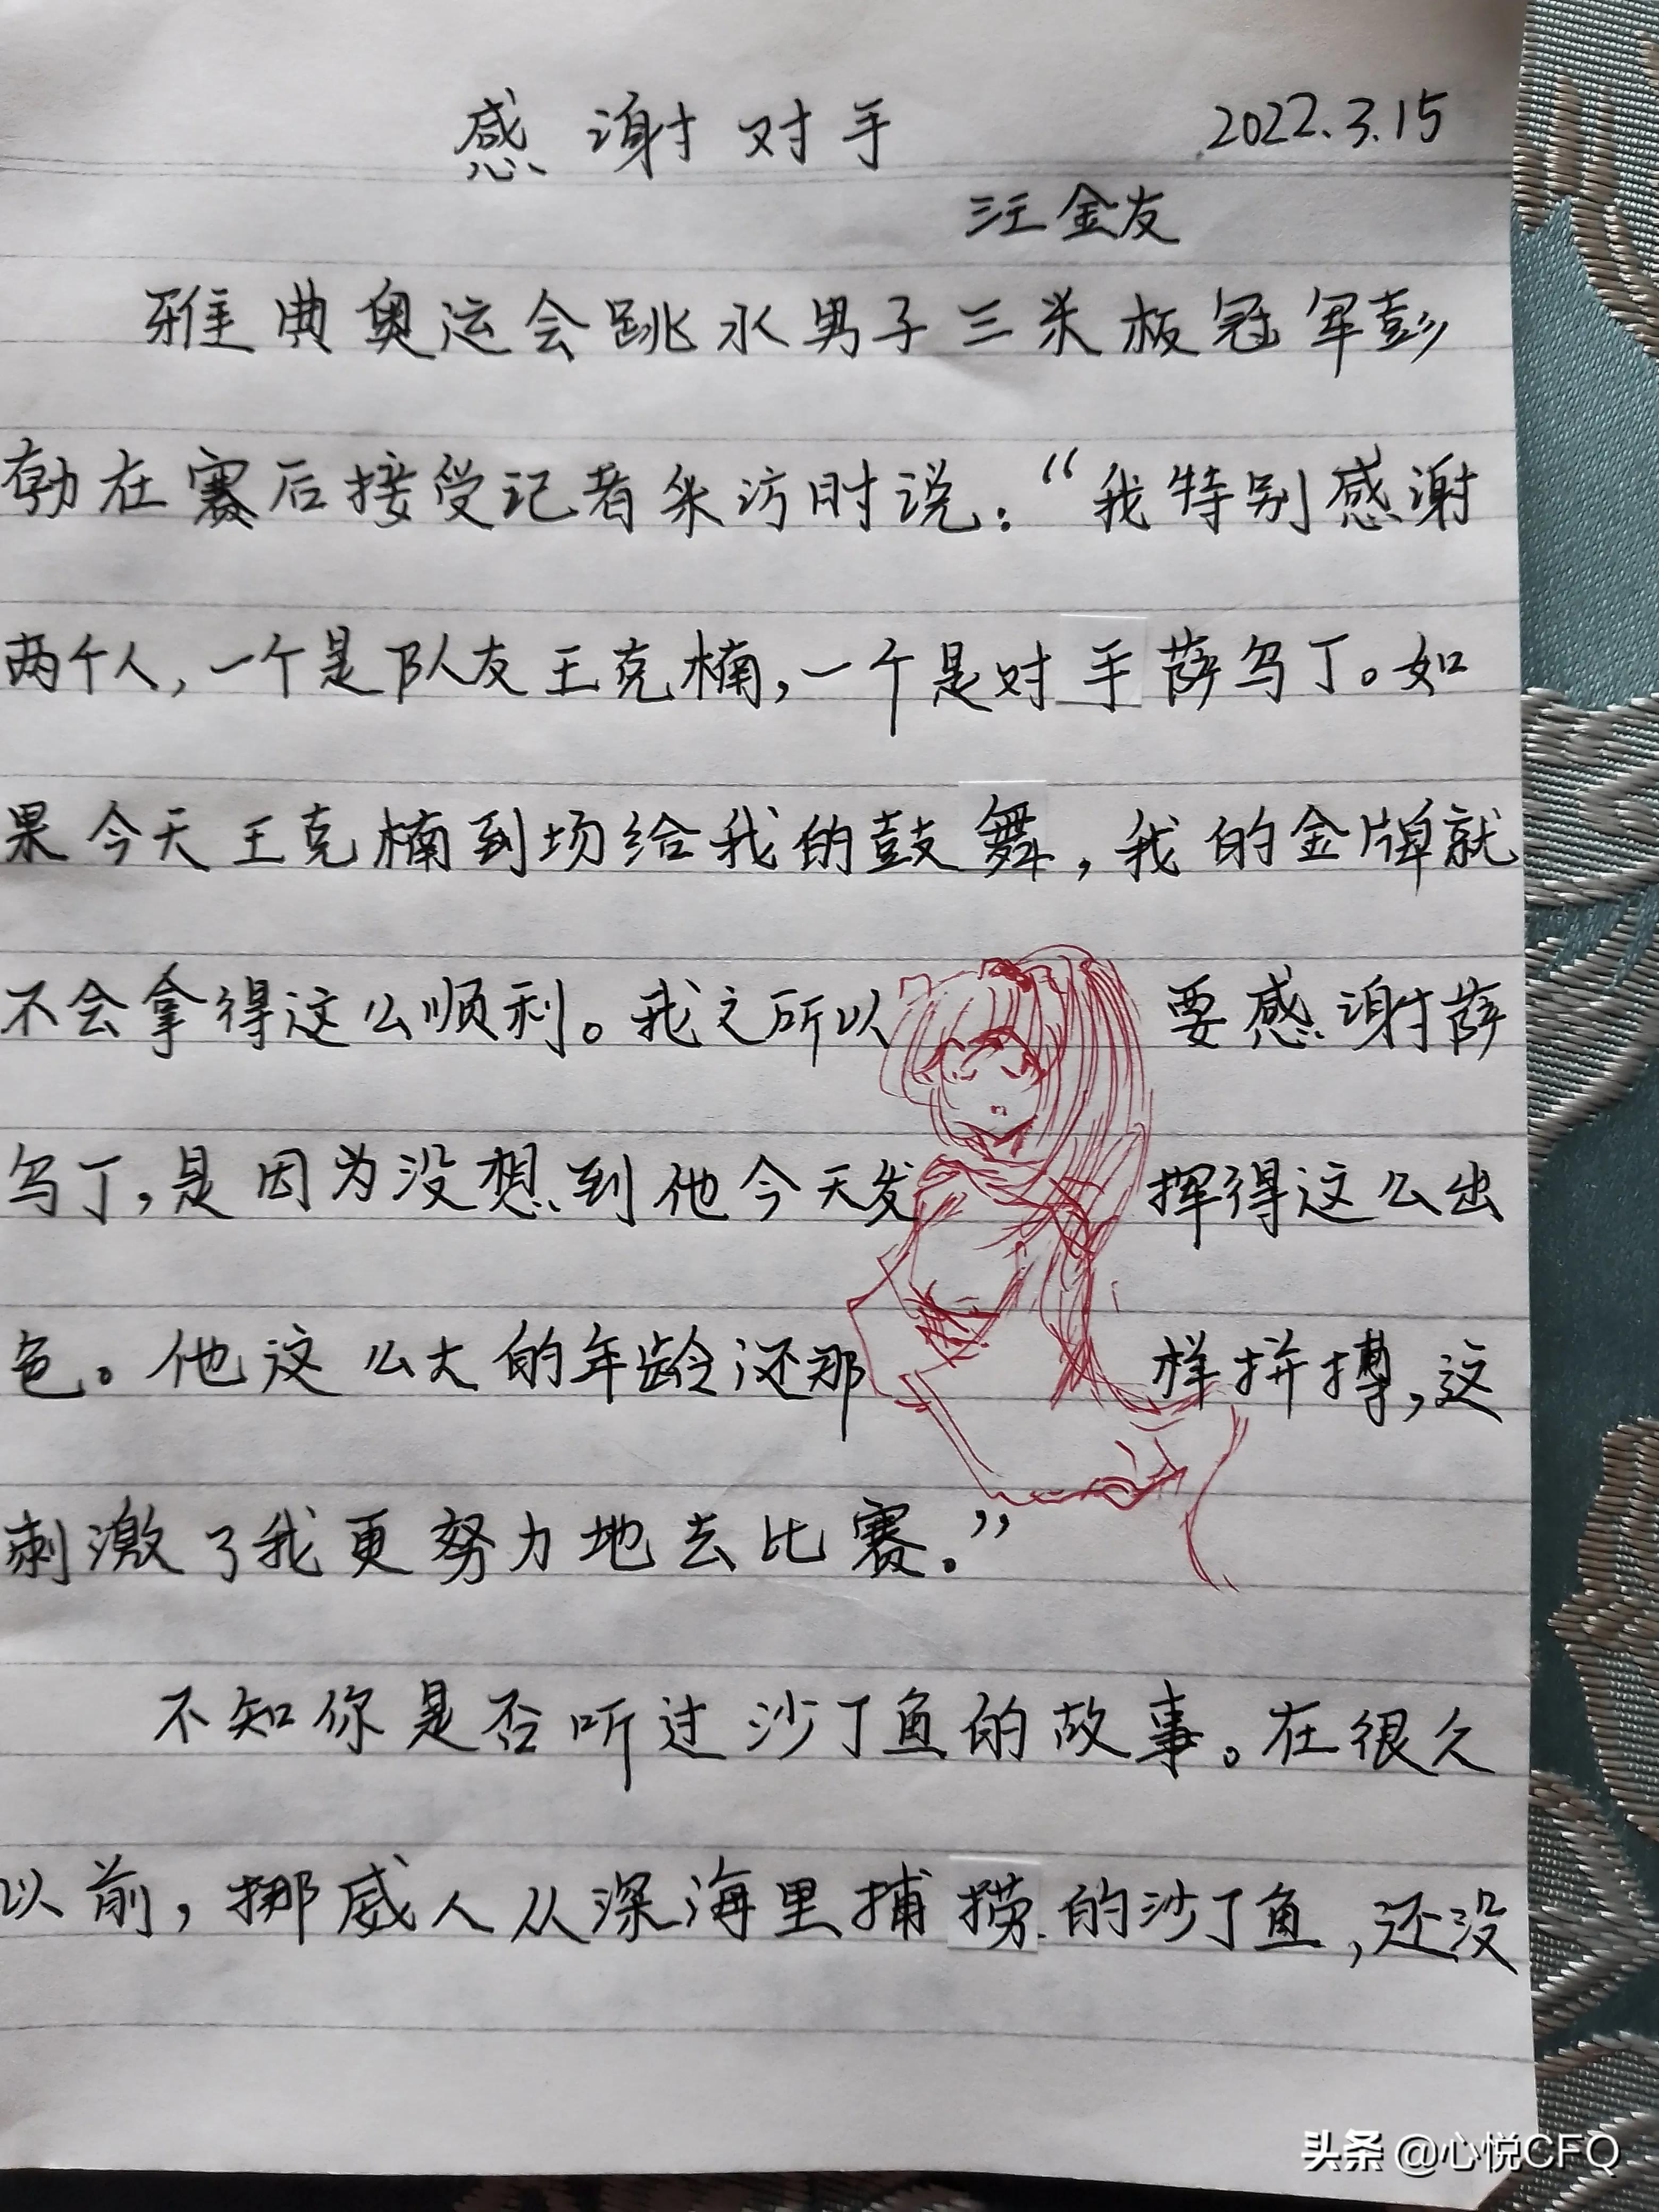 感谢对手 2022.3.15
汪金友
雅典奥运会跳水男子三米板冠军彭
勃在赛后接受记者采访时说：“我特别感谢
两个人，一个是队友王克楠，一个是对手萨乌丁。如
果今天王克楠到场给我的鼓舞，我的金牌就
不会拿得这么顺利。我之所以要感谢萨
乌丁，是因为没想到他今天发挥得这么出
色。他这么大的年龄还那样拼搏，这
刺激了我更努力地去比赛。”
不知你是否听过沙丁鱼的故事。在很久
以前，挪威人从深海里捕捞的沙丁鱼，还没
头条 @心悦CFQ